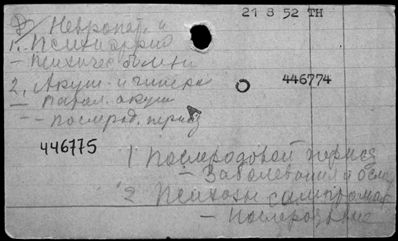 21 8 52 TH
Невропат. и
1. Психиатрия
– Психич. болезни
2. Акуш. и гинек.
446774
– Патол. акуш.
– – послерод. период
446775
1 Послеродовой период
– Заболевания и осл.
2 Психозы
– Послеродовые